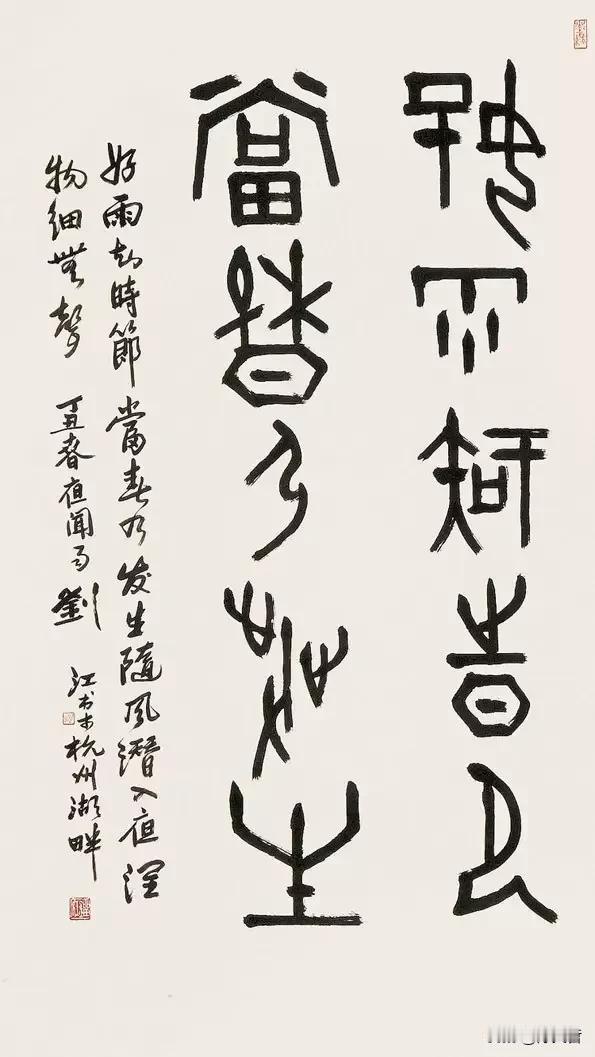 好雨知時節
當春乃發生
好雨知時節當春乃發生隨風潛入夜潤
物細無聲 丁丑春夜聞雨 劉江書於杭州湖畔